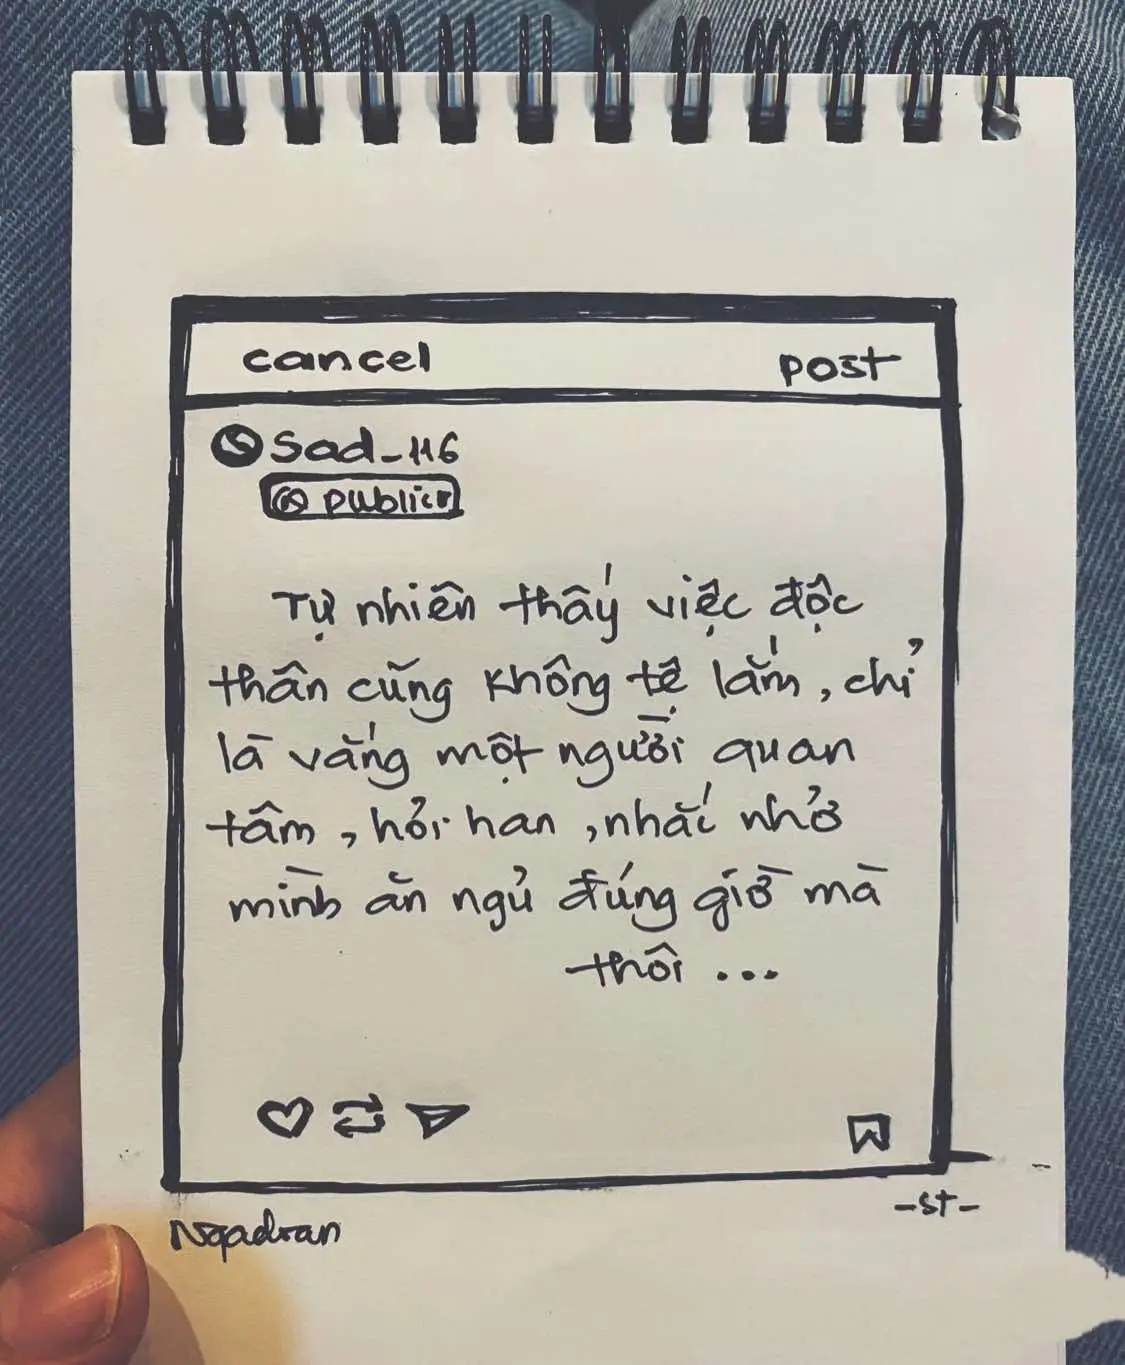 cancel post
Sad_116
public
Tự nhiên thấy việc độc
thân cũng không tệ lắm, chỉ
là vắng một người quan
tâm, hỏi han, nhắc nhở
mình ăn ngủ đúng giờ mà
thôi ...
-st-